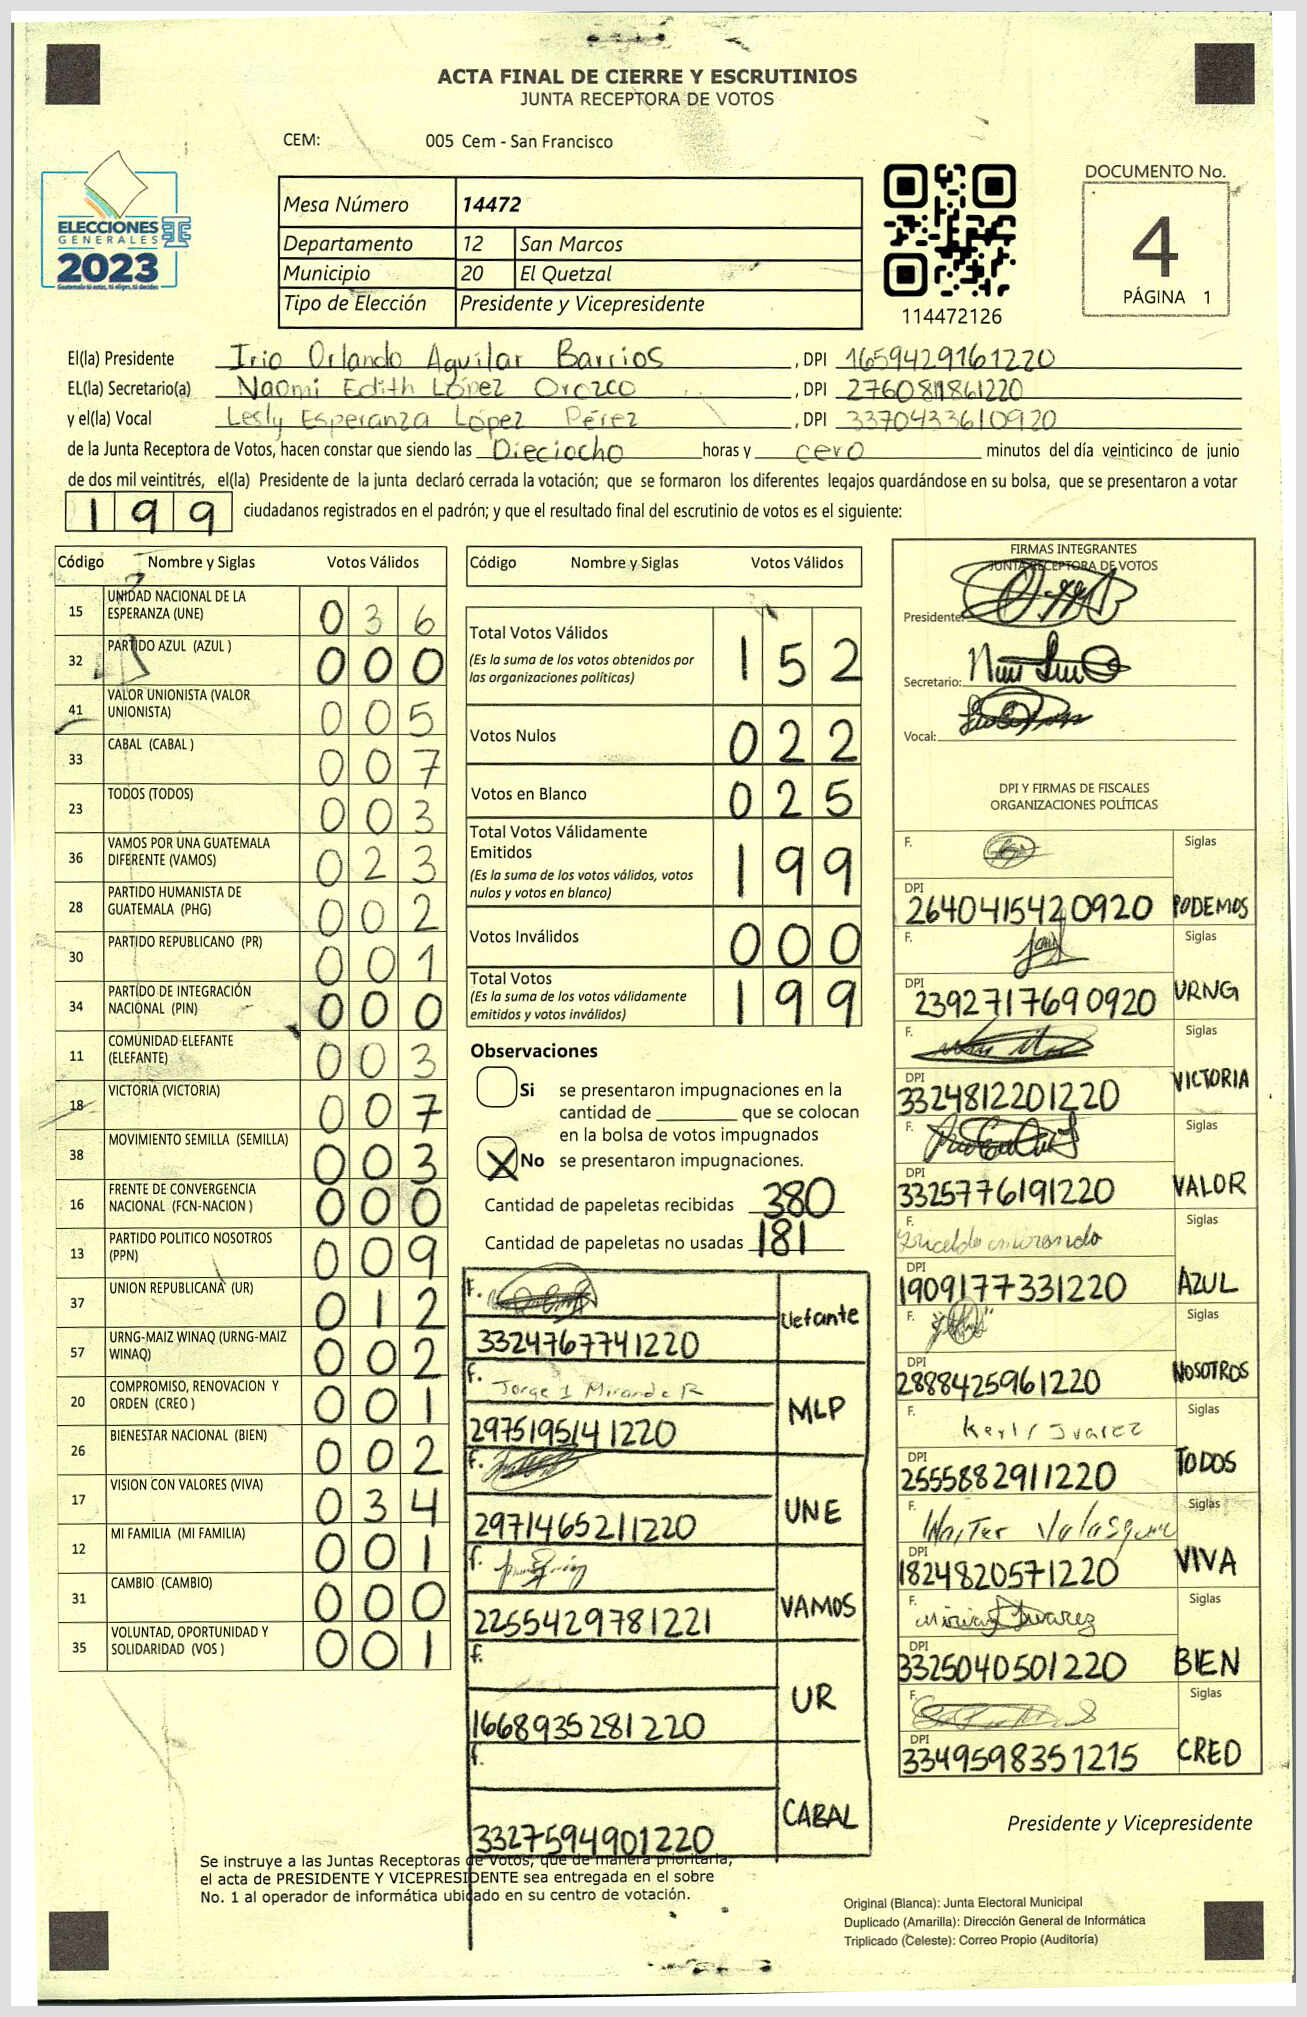 ACTA FINAL DE CIERRE Y ESCRUTINIOS
JUNTA RECEPTORA DE VOTOS
CEM: 005 Cem - San Francisco
ELECCIONES
GENERALES
2023
Guatemala tú estas, tú eliges, tú decides
Mesa Número 14472
Departamento 12 San Marcos
Municipio 20 El Quetzal
Tipo de Elección Presidente y Vicepresidente
114472126
DOCUMENTO No.
4
PÁGINA 1
El(la) Presidente Irio Orlando Aguilar Barrios, DPI 1659429161220
EL(la) Secretario(a) Naomi Edith López Orozco, DPI 2760811861220
y el(la) Vocal Lesly Esperanza López Pérez, DPI 3370433610920
de la Junta Receptora de Votos, hacen constar que siendo las Dieciocho horas y cero minutos del día veinticinco de junio
de dos mil veintitrés, el(la) Presidente de la junta declaró cerrada la votación; que se formaron los diferentes legajos guardándose en su bolsa, que se presentaron a votar
199 ciudadanos registrados en el padrón; y que el resultado final del escrutinio de votos es el siguiente:
Código Nombre y Siglas Votos Válidos
15 UNIDAD NACIONAL DE LA ESPERANZA (UNE) 036
32 PARTIDO AZUL (AZUL ) 000
41 VALOR UNIONISTA (VALOR UNIONISTA) 005
33 CABAL (CABAL ) 007
23 TODOS (TODOS) 003
36 VAMOS POR UNA GUATEMALA DIFERENTE (VAMOS) 023
28 PARTIDO HUMANISTA DE GUATEMALA (PHG) 002
30 PARTIDO REPUBLICANO (PR) 001
34 PARTIDO DE INTEGRACIÓN NACIONAL (PIN) 000
11 COMUNIDAD ELEFANTE (ELEFANTE) 003
18 VICTORIA (VICTORIA) 007
38 MOVIMIENTO SEMILLA (SEMILLA) 003
16 FRENTE DE CONVERGENCIA NACIONAL (FCN-NACION ) 000
13 PARTIDO POLITICO NOSOTROS (PPN) 009
37 UNION REPUBLICANA (UR) 012
57 URNG-MAIZ WINAQ (URNG-MAIZ WINAQ) 002
20 COMPROMISO, RENOVACION Y ORDEN (CREO ) 001
26 BIENESTAR NACIONAL (BIEN) 002
17 VISION CON VALORES (VIVA) 034
12 MI FAMILIA (MI FAMILIA) 001
31 CAMBIO (CAMBIO) 000
35 VOLUNTAD, OPORTUNIDAD Y SOLIDARIDAD (VOS ) 001
Código Nombre y Siglas Votos Válidos
Total Votos Válidos 152
(Es la suma de los votos obtenidos por
las organizaciones políticas)
Votos Nulos 022
Votos en Blanco 025
Total Votos Válidamente
Emitidos 199
(Es la suma de los votos válidos, votos
nulos y votos en blanco)
Votos Inválidos 000
Total Votos 199
(Es la suma de los votos válidamente
emitidos y votos inválidos)
Observaciones
Si se presentaron impugnaciones en la
cantidad de ________ que se colocan
en la bolsa de votos impugnados
X No se presentaron impugnaciones.
Cantidad de papeletas recibidas 380
Cantidad de papeletas no usadas 181
f.
3324767741220 Elefante
f. Jorge I Miranda R
2975195141220 MLP
f.
2971465211220 UNE
f.
2255429781221 VAMOS
f.
1668935281220 UR
f.
3327594901220 CABAL
FIRMAS INTEGRANTES
JUNTA RECEPTORA DE VOTOS
Presidente:
Secretario:
Vocal:
DPI Y FIRMAS DE FISCALES
ORGANIZACIONES POLÍTICAS
F. Siglas
DPI
2640415420920 PODEMOS
F. Siglas
DPI
2392717690920 URNG
F. Siglas
DPI
3324812201220 VICTORIA
F. Siglas
DPI
3325776191220 VALOR
F. Siglas
DPI
1909177331220 AZUL
F. Siglas
DPI
2888425961220 NOSOTROS
F. Kerly Juarez Siglas
DPI
2555882911220 TODOS
F. Walter Velasquez Siglas
DPI
1824820571220 VIVA
F. Miriam Juarez Siglas
DPI
3325040501220 BIEN
F. Siglas
DPI
3349598351215 CREO
Presidente y Vicepresidente
Se instruye a las Juntas Receptoras de Votos, que de manera prioritaria,
el acta de PRESIDENTE Y VICEPRESIDENTE sea entregada en el sobre
No. 1 al operador de informática ubicado en su centro de votación.
Original (Blanca): Junta Electoral Municipal
Duplicado (Amarilla): Dirección General de Informática
Triplicado (Celeste): Correo Propio (Auditoría)